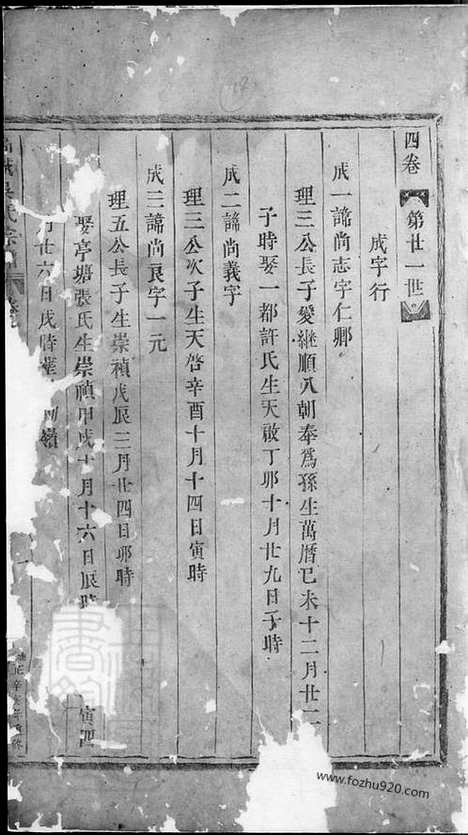 四卷 第廿一世
成字行
成一諱尚志字仁卿
理三公長子爰继順八朝奉爲孫生萬曆已未十二月廿二
子時娶一都許氏生天啟丁卯十月廿九日子時
成二諱尚義字
理三公次子生天啓辛酉十月十四日寅時
成三諱尚良字一元
理五公長子生崇禎戊辰三月廿四日卯時
娶亭塘張氏生崇禎甲戌十月十六日辰時
寅酉
月廿六日戌時葬
嶺
氏宗
www.fozhu920.com